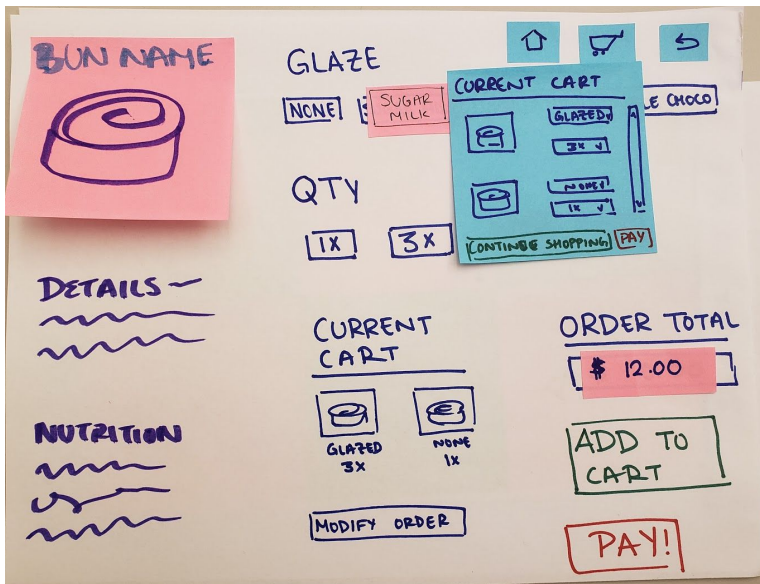 BUN NAME
GLAZE
NONE
SUGAR
MILK
LE CHOCO
CURRENT CART
GLAZED
3x
NONE
1x
CONTINUE SHOPPING
PAY
QTY
1X
3X
DETAILS
NUTRITION
CURRENT
CART
GLAZED
3X
NONE
1X
MODIFY ORDER
ORDER TOTAL
$ 12.00
ADD TO
CART
PAY!